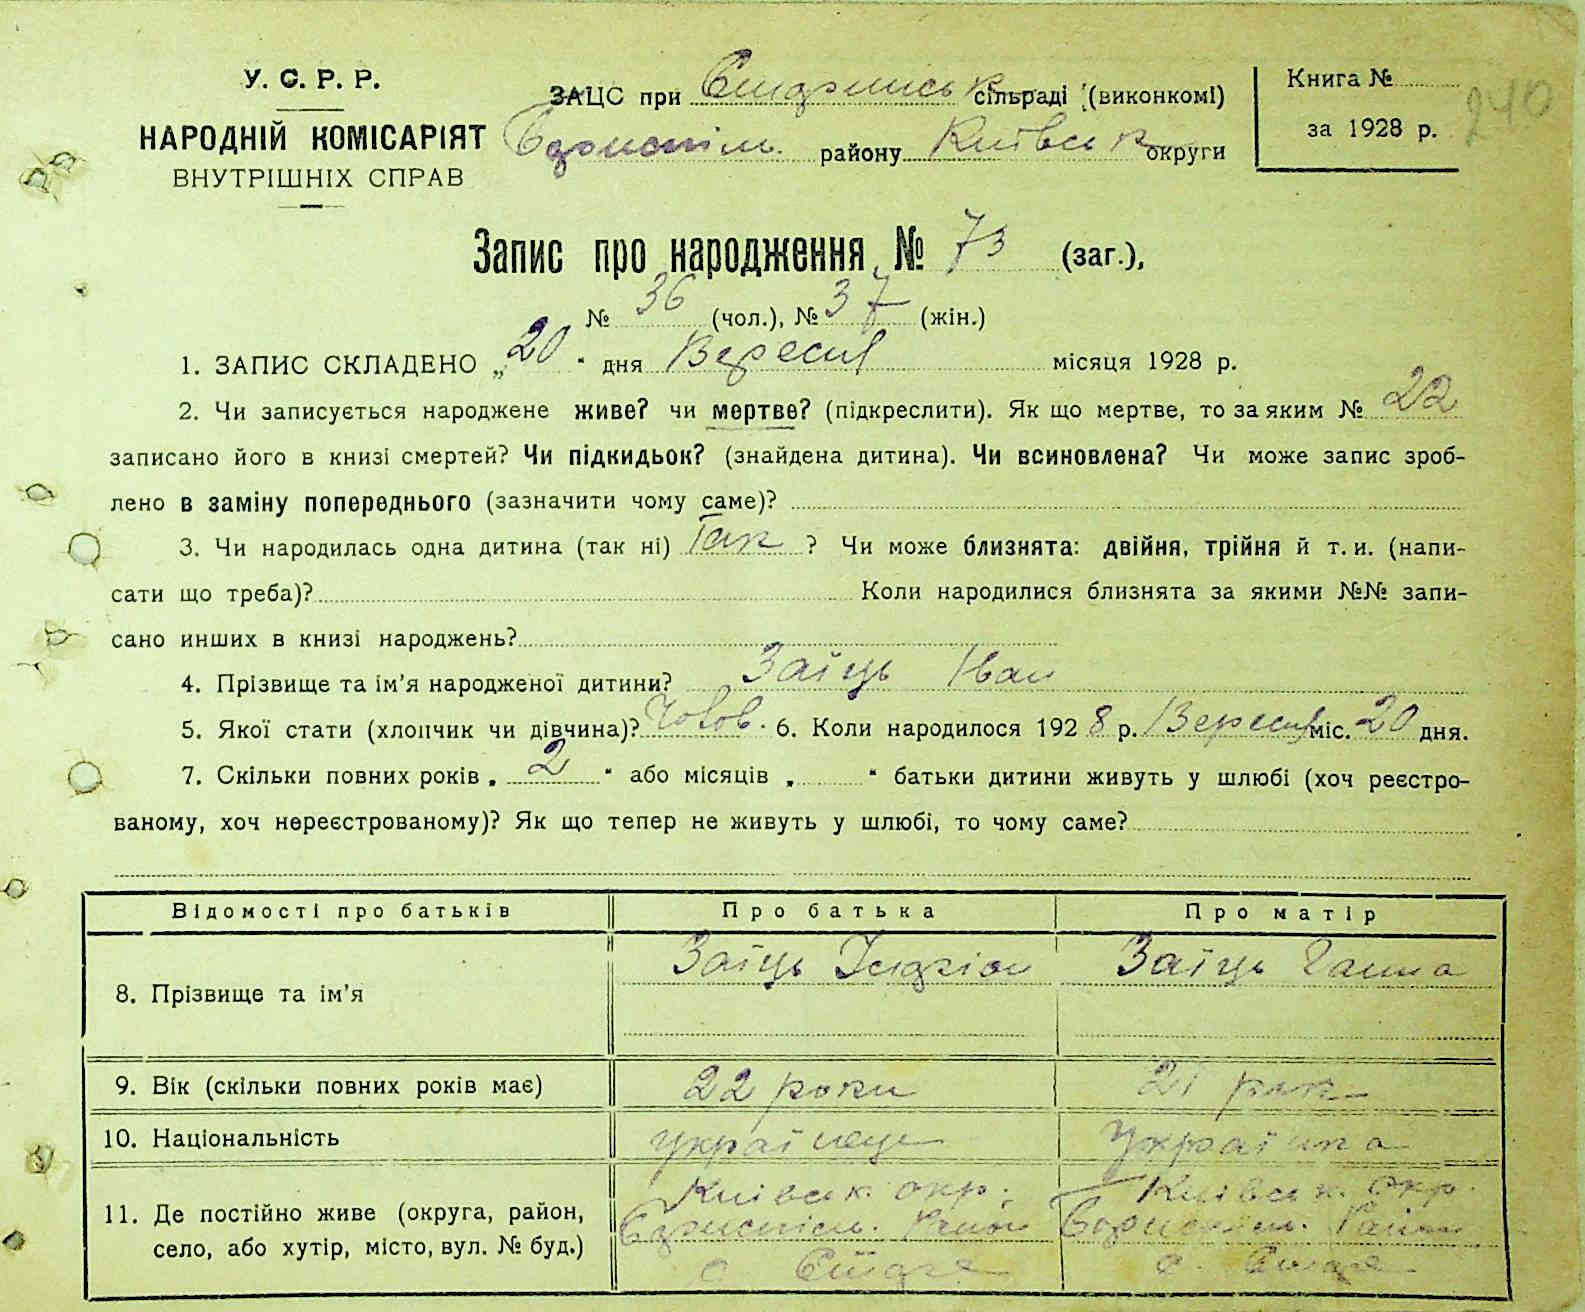 У. С. Р. Р.
НАРОДНІЙ КОМІСАРІЯТ
ВНУТРІШНІХ СПРАВ
ЗАЦС при сільраді (виконкомі)
району Київськ округи
Книга №
за 1928 р.
240
Запис про народження № 73 (заг.),
№ 36 (чол.), № 37 (жін.)
1. ЗАПИС СКЛАДЕНО „20" дня Вересня місяця 1928 р.
2. Чи записується народжене живе? чи мертве? (підкреслити). Як що мертве, то за яким № 22
записано його в книзі смертей? Чи підкидьок? (знайдена дитина). Чи всиновлена? Чи може запис зроб-
лено в заміну попереднього (зазначити чому саме)?
3. Чи народилась одна дитина (так ні) Так ? Чи може близнята: двійня, трійня й т. и. (напи-
сати що треба)? Коли народилися близнята за якими №№ запи-
сано инших в книзі народжень?
4. Прізвище та ім'я народженої дитини? Заїць Іван
5. Якої стати (хлопчик чи дівчина)? Чолов. 6. Коли народилося 1928 р. Вересня міс. 20 дня.
7. Скільки повних років „ 2 " або місяців „ " батьки дитини живуть у шлюбі (хоч реєстро-
ваному, хоч нереєстрованому)? Як що тепер не живуть у шлюбі, то чому саме?
Відомості про батьків Про батька Про матір
8. Прізвище та ім'я Заїць Заїць Ганна
9. Вік (скільки повних років має) 22 роки 21 рок
10. Національність українець Українка
11. Де постійно живе (округа, район,
село, або хутір, місто, вул. № буд.)
Київськ. окр. Київськ. Окр.
Бориспільс. Район Бориспільс. Район
с. Старе с. Старе